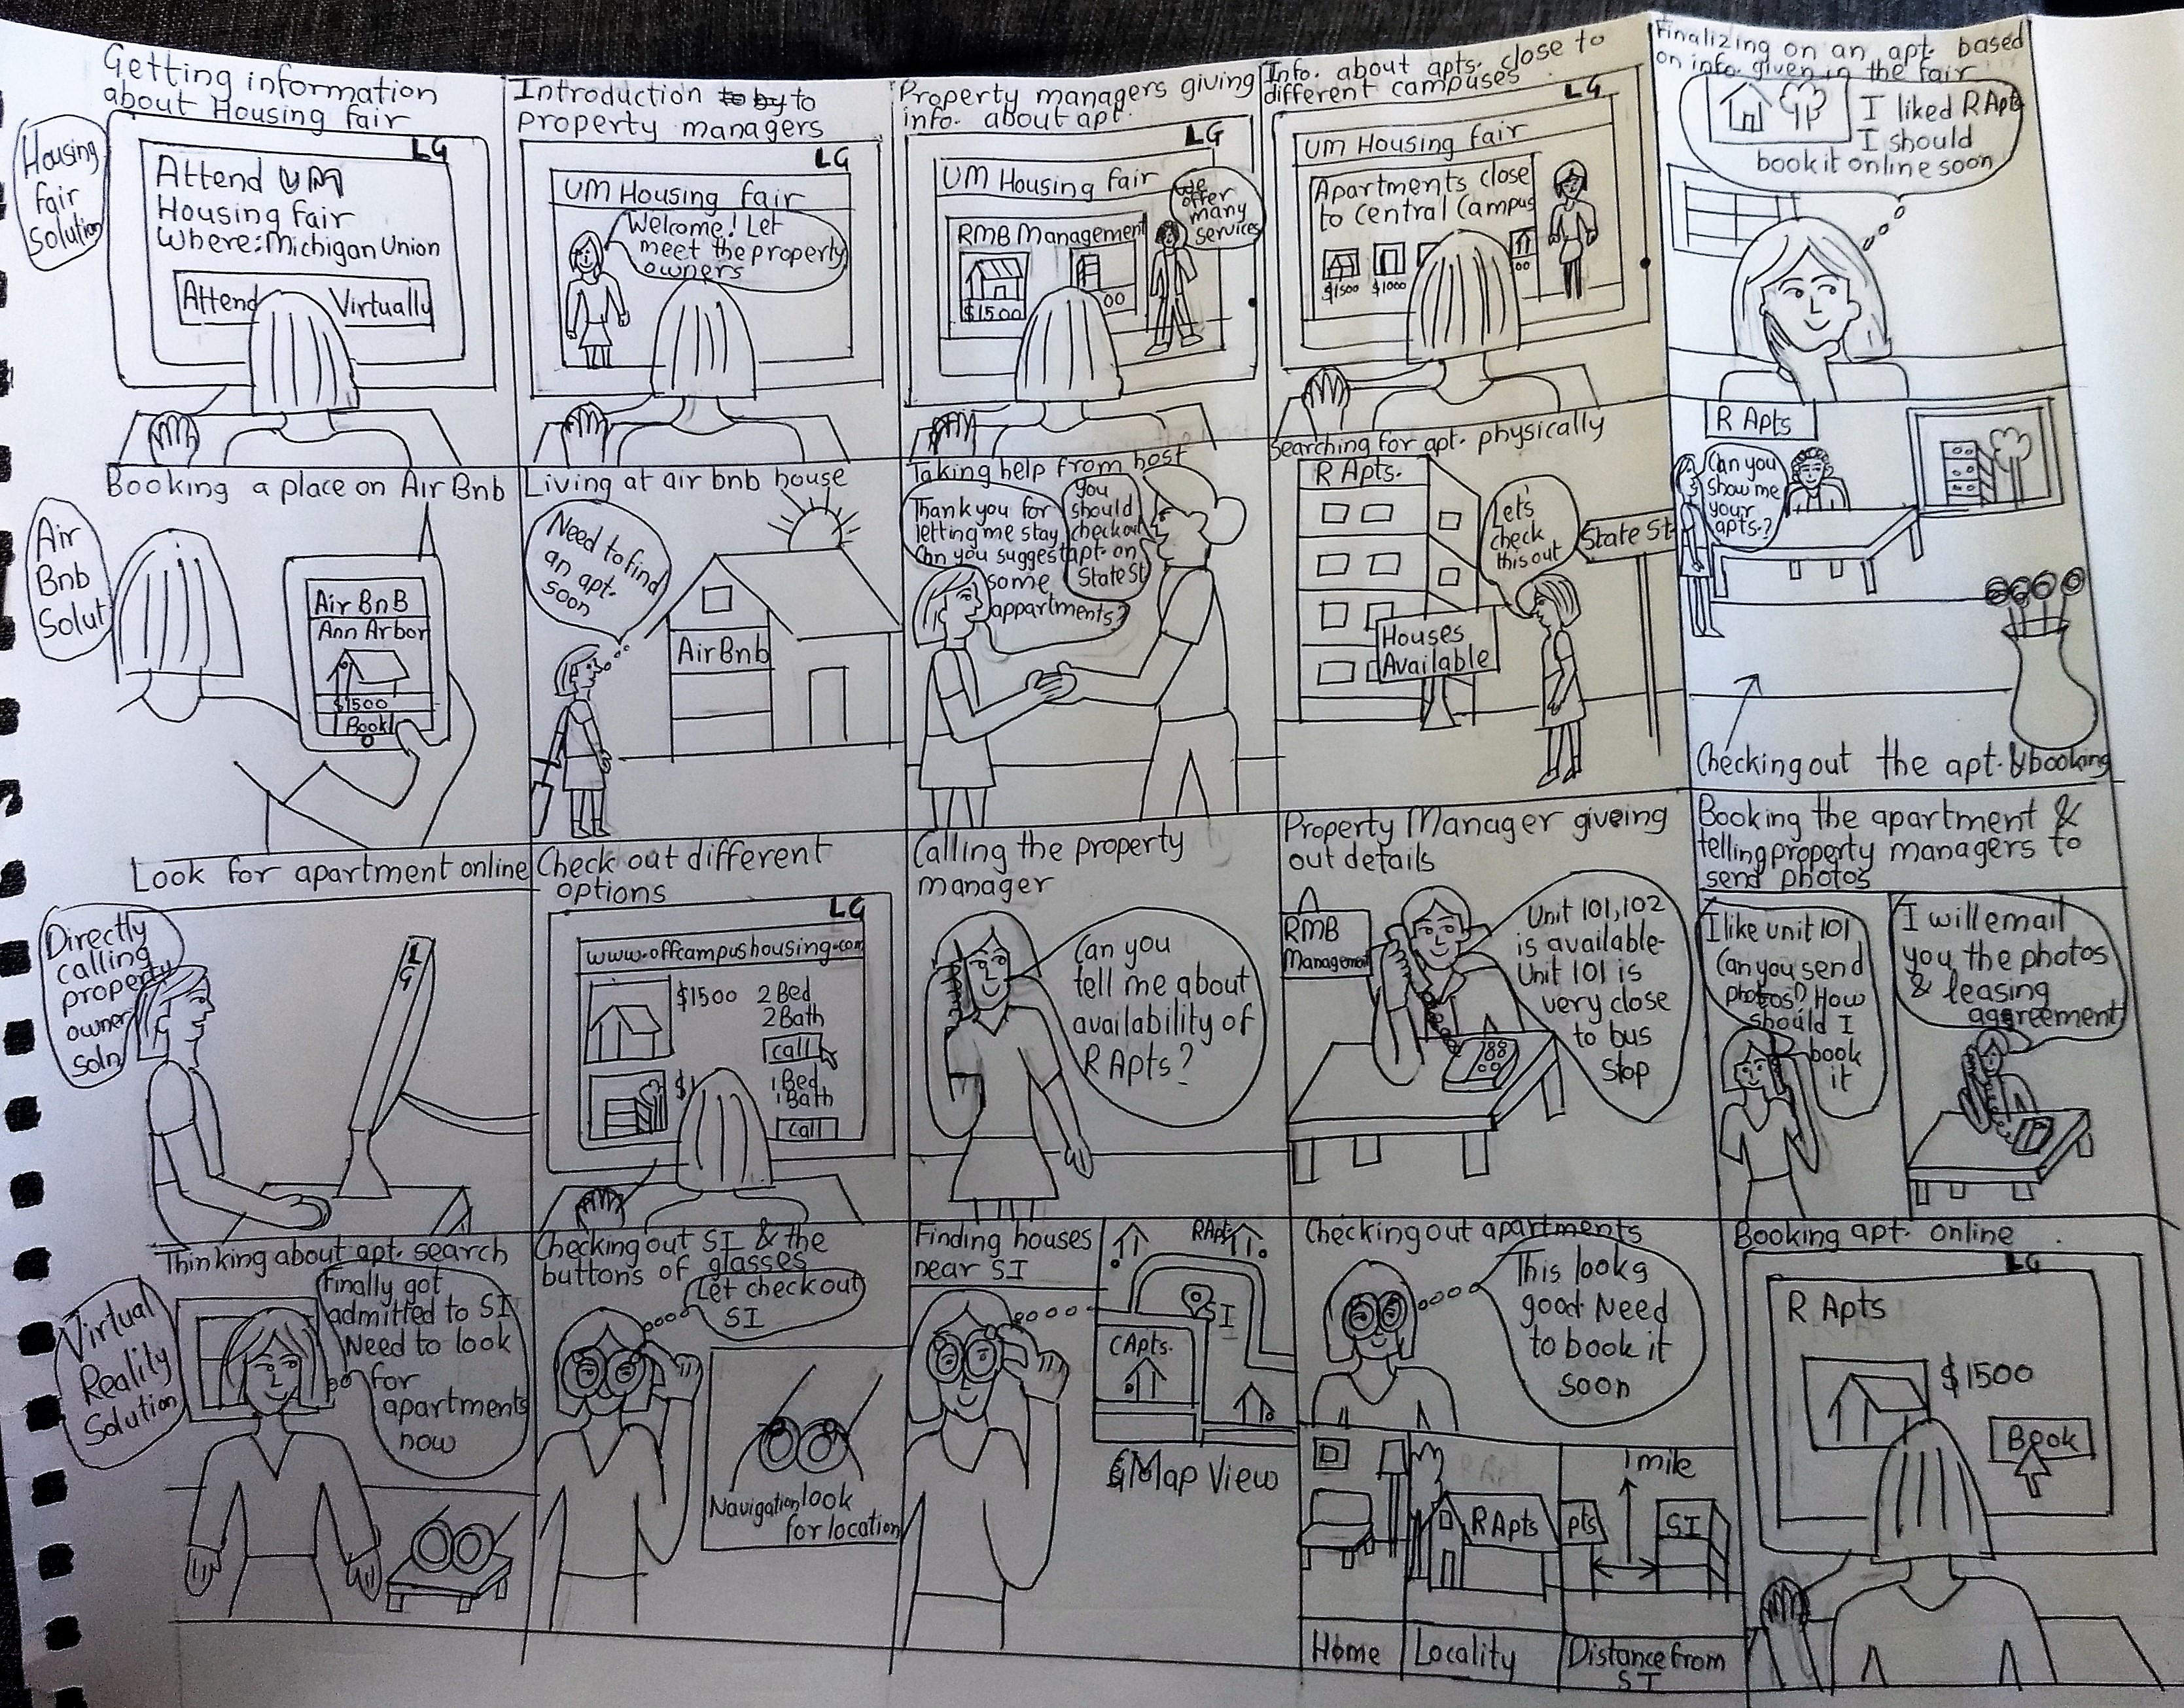 Housing
fair
solution
Getting information
about Housing fair
LG
Attend UM
Housing Fair
Where: Michigan Union
Attend Virtually
Introduction to by to
property managers
LG
UM Housing fair
Welcome! Let
meet the property
owners
Property managers giving
info. about apt.
LG
UM Housing fair
RMB Management
$1500
00
We
offer
many
services
Info. about apts. close to
different campuses
LG
UM Housing fair
Apartments close
to Central Campus
$1500 $1000
00
Finalizing on an apt. based
on info. given in the fair
I liked R Apts
I should
book it online soon
Air
Bnb
Solut
Booking a place on Air Bnb
Air BnB
Ann Arbor
$1500
Book
Living at air bnb house
Need to find
an apt.
soon
Air Bnb
Taking help from host
Thank you for
letting me stay
Can you suggest
some
appartments?
you
should
check out
apt. on
State St
Searching for apt. physically
R Apts.
Let's
check
this out
State St
Houses
Available
R Apts
Can you
show me
your
apts.?
Checking out the apt. & booking
Directly
calling
property
owner
soln
Look for apartment online
LG
Check out different
options
LG
www.offcampushousing.com
$1500 2 Bed
2 Bath
Call
$1
1 Bed
1 Bath
Call
Calling the property
manager
Can you
tell me about
availability of
R Apts?
Property Manager giveing
out details
RMB
Management
Unit 101, 102
is available.
Unit 101 is
very close
to bus
stop
Booking the apartment &
telling property managers to
send photos
I like unit 101
Can you send
photos? How
should I
book
it
I will email
you the photos
& leasing
aggreement
Virtual
Reality
Solution
Thinking about apt. search
Finally got
admitted to SI
Need to look
for
apartments
now
Checking out SI & the
buttons of glasses
Let check out
SI
Navigation look
for location
Finding houses
near SI
R Apts
SI
C Apts.
GMap View
Checking out apartments
This looks
good. Need
to book it
soon
R Apts
pts
1 mile
SI
Home
Locality
Distance from
SI
Booking apt. online
LG
R Apts
$1500
Book